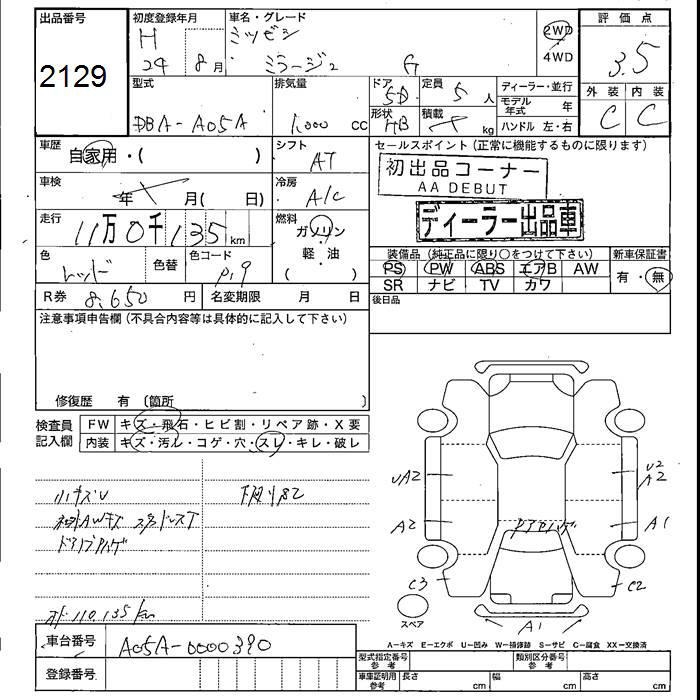 出品番号
2129
初度登録年月
H
24 8月
車名・グレード
ミツビシ
ミラージュ G
2WD
4WD
評価点
3.5
外装 内装
C C
型式
DBA-A05A
排気量
1.000 cc
ドア
5D
形状
HB
定員
5 人
積載
kg
ディーラー・並行
モデル年式 年
ハンドル 左・右
車歴
自家用・( )
シフト
AT
セールスポイント(正常に機能するものに限ります)
初出品コーナー
AA DEBUT
ディーラー出品車
車検
年 月( 日)
冷房
A/C
走行
11万0千135km
燃料
ガソリン
軽・油
( )
色
レッド
色替
色コード
P19
装備品(純正品に限り○をつけて下さい)
PS PW ABS エアB AW
SR ナビ TV カワ
新車保証書
有・無
R券 8,650円
名変期限 月 日
後日品
注意事項申告欄(不具合内容等は具体的に記入して下さい)
修復歴 有(箇所 )
検査員
記入欄
FW キズ・飛石・ヒビ割・リペア跡・X要
内装 キズ・汚れ・コゲ・穴・スレ・キレ・破レ
小キズU
下廻りS2
社外AWキズ スタッドレスT
ドアノブアトハゲ
メーター 110,135km
UA2
U2
A2
A2
A1
C3
C2
A1
スペア
A-キズ E-エクボ U-凹み W-補修跡 S-サビ C-腐食 XX-交換済
車台番号
A05A-0000390
登録番号
型式指定番号
参考
類別区分番号
参考
車庫証明用
参考
長さ cm
幅 cm
高さ cm